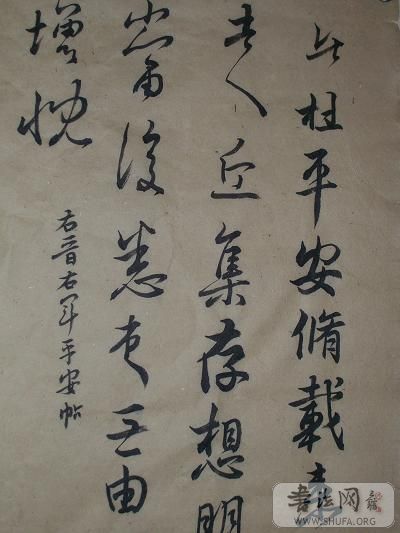 此粗平安脩載来
人近集存想明
當復悉来無由
增慨
右晉右軍平安帖
書法网
WWW.SHUFA.ORG